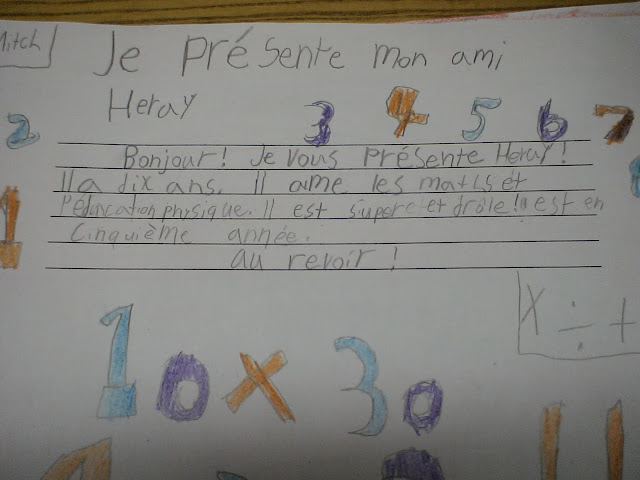 Mitch
Je présente mon ami
Heray
2 3 4 5 6 7
1
Bonjour! Je vous présente Heray!
Il a dix ans. Il ame les maths et
l'éducation physique. Il est super et drôle! Il est en
cinquième année.
au revoir!
X ÷ +
10 x 30